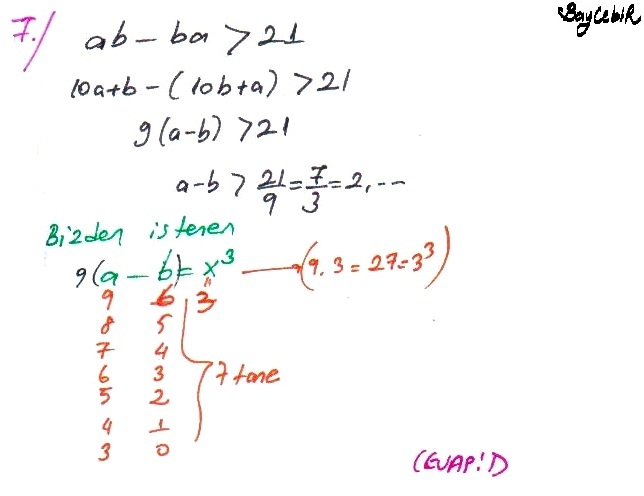 BayCebiR
7./ ab - ba > 21
10a+b - (10b+a) > 21
9(a-b) > 21
a-b > 21/9 = 7/3 = 2,...
Bizden istenen
9(a - b) = x³ → (9.3 = 27 = 3³)
9 6 3
8 5
7 4
6 3 7 tane
5 2
4 1
3 0
(EVAP: D